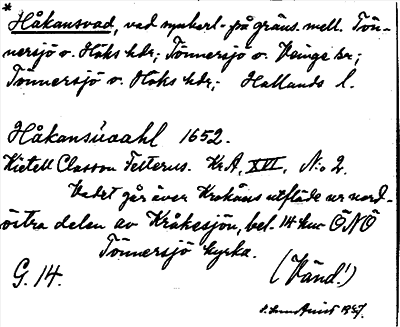 *
Håkansvad, vad mycket på gräns. mell. Tön-
nersjö o. Höks hdr; Tönnersjö o. Veinge sr;
Tönnersjö o. Höks hdr; Hallands l.
Håkansuaahl 1652.
Kietell Classon Felterus. Kr.A, XVI, No 2.
Vadet går över Krokåns utflöde ur nord-
östra delen av Kråkesjön, bel. 14 km ÖNÖ
Tönnersjö kyrka.
G. 14. (Vänd!)
1927.